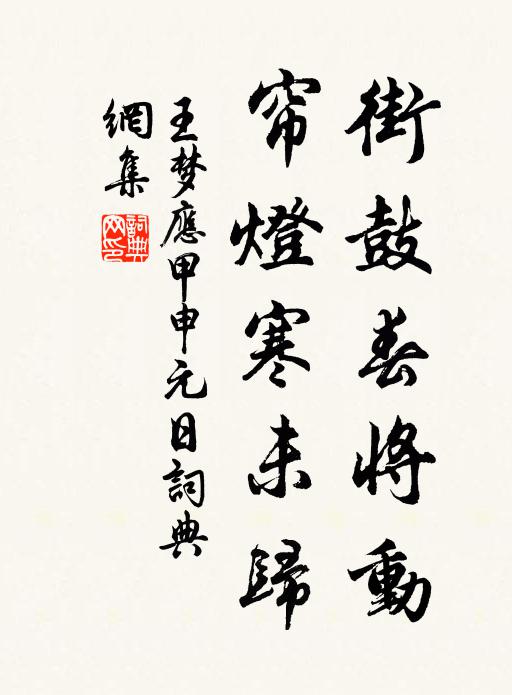 街鼓春將動
帘燈寒未歸
王梦應甲申元日詞典
網集
詞典
网印